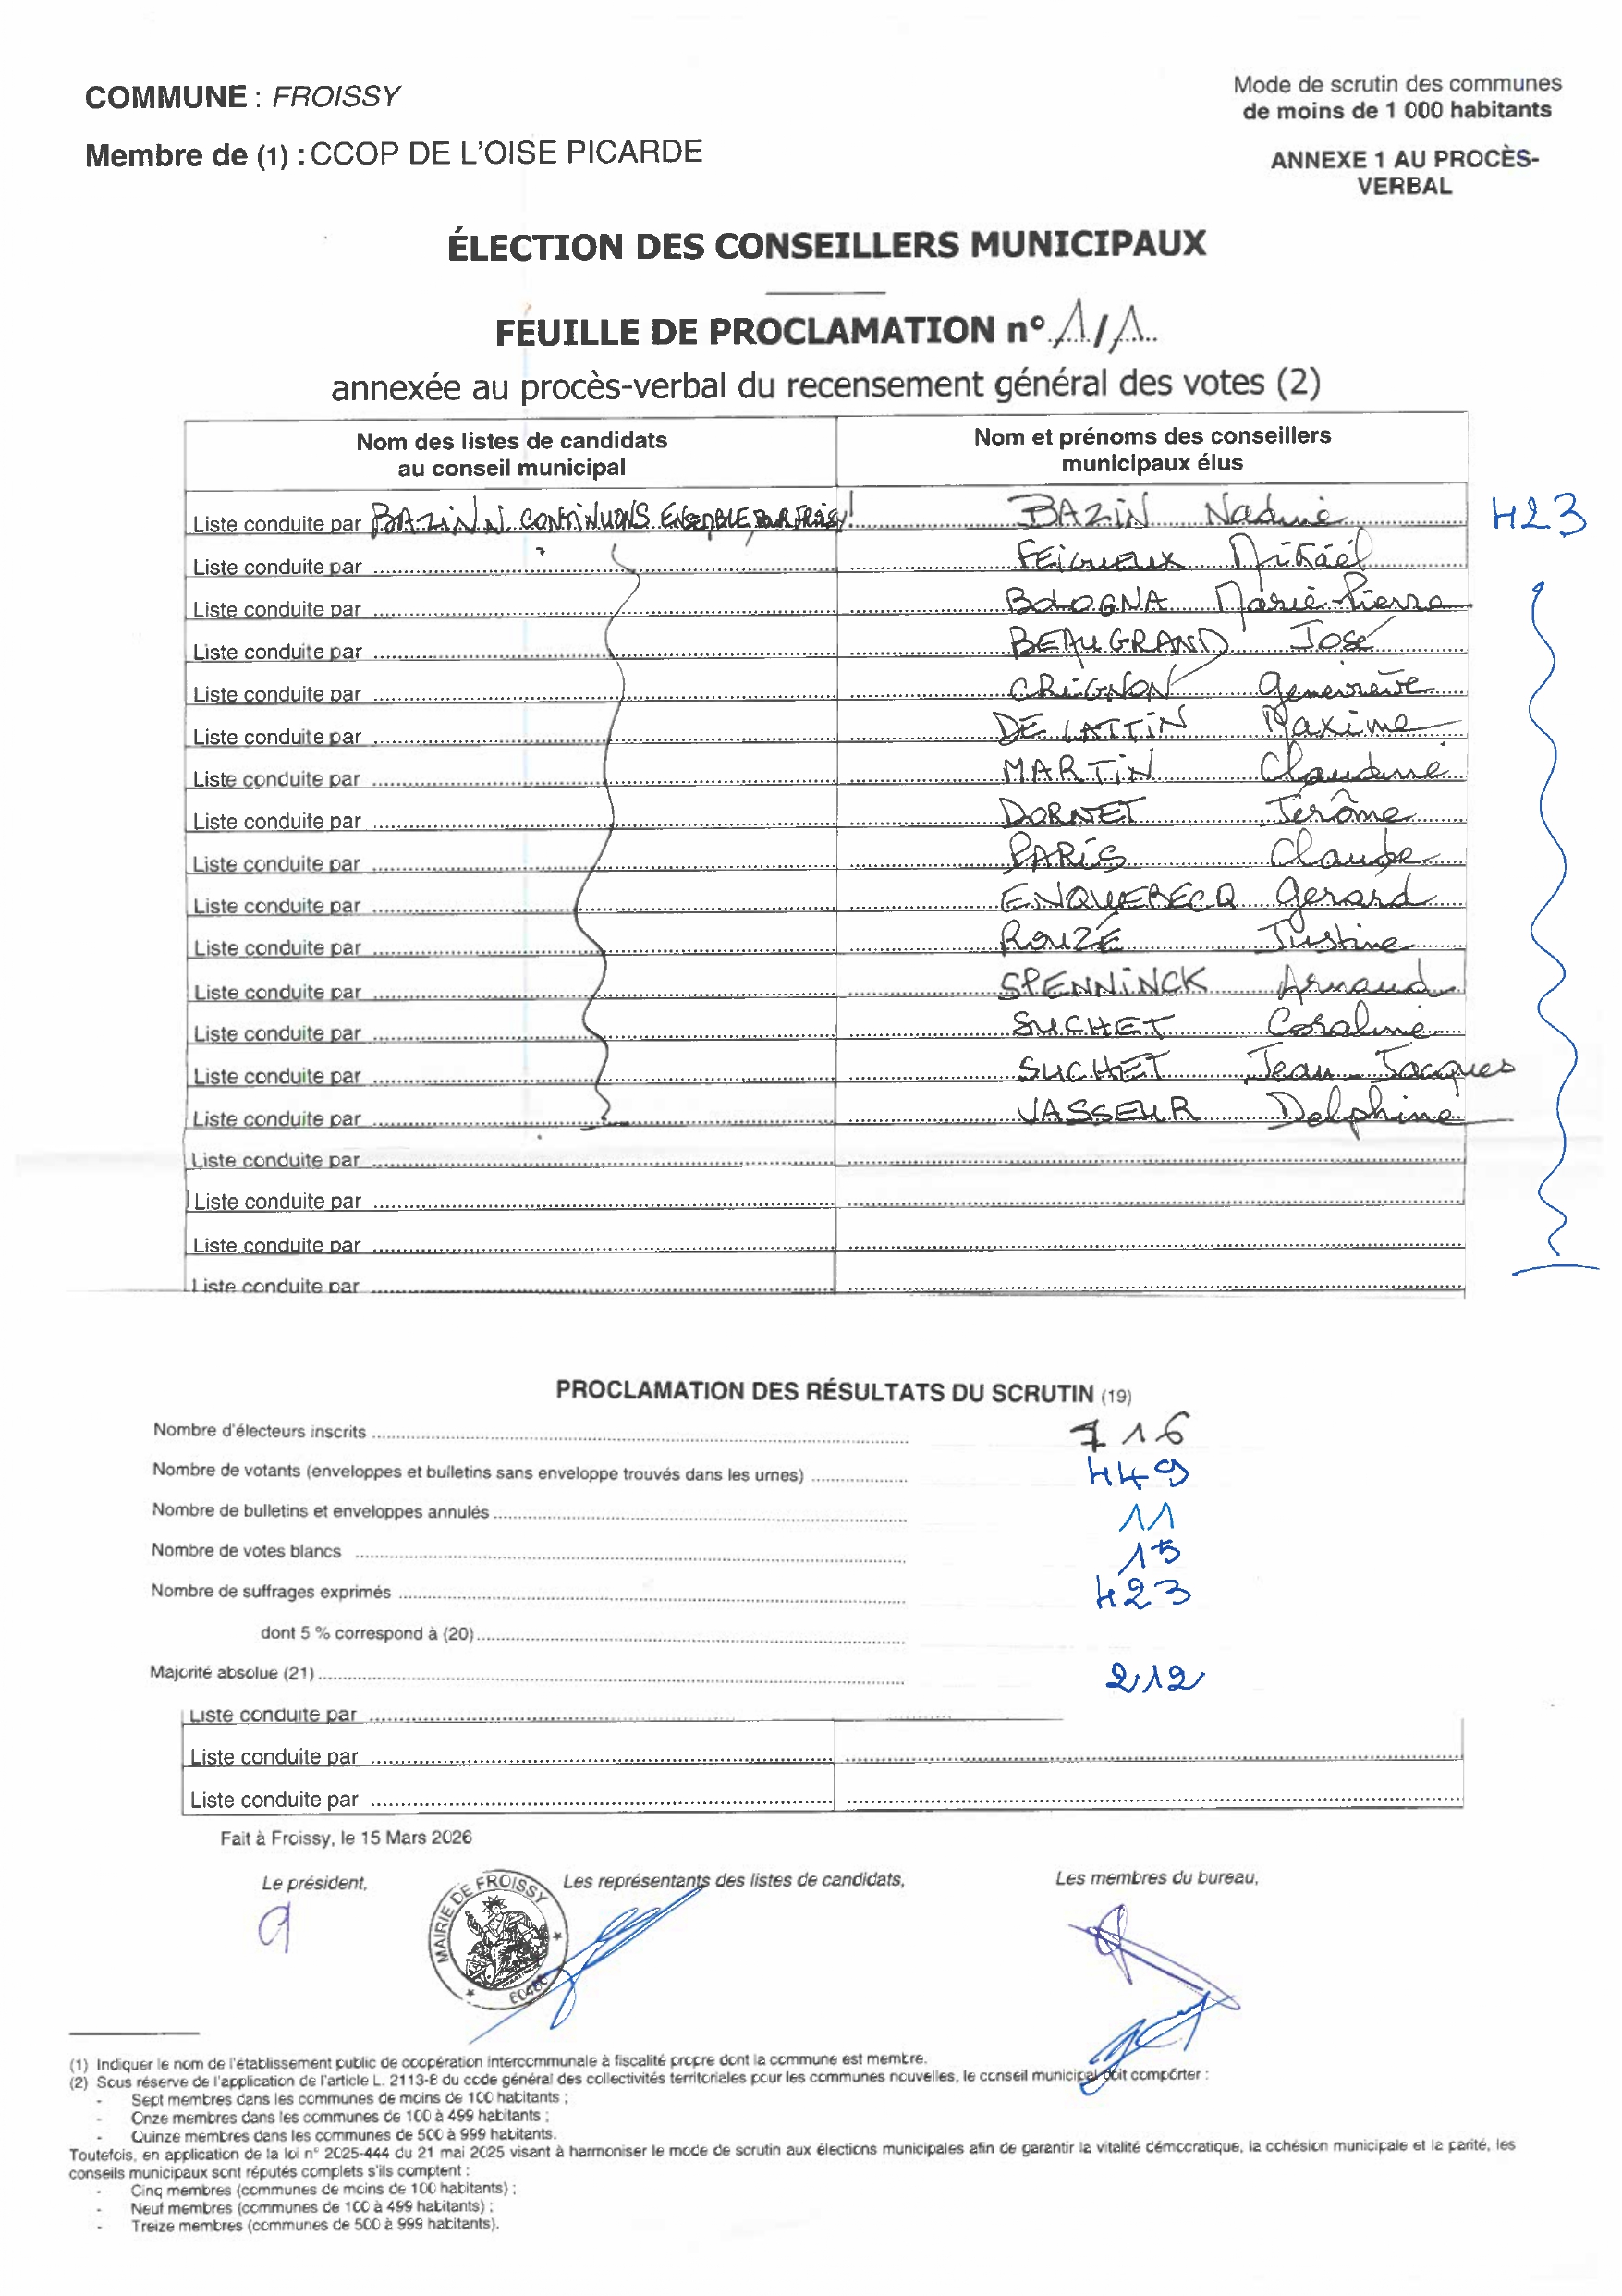 COMMUNE : FROISSY
Mode de scrutin des communes
de moins de 1 000 habitants
Membre de (1) : CCOP DE L'OISE PICARDE
ANNEXE 1 AU PROCÈS-
VERBAL
ÉLECTION DES CONSEILLERS MUNICIPAUX
FEUILLE DE PROCLAMATION n° 1/1
annexée au procès-verbal du recensement général des votes (2)
Nom des listes de candidats
au conseil municipal
Nom et prénoms des conseillers
municipaux élus
Liste conduite par BAZIN N. CONTINUONS ENSEMBLE POUR FROISSY! BAZIN Nadine 423
Liste conduite par FEIGUEUX Mikaël
Liste conduite par BOLOGNA Marie-Pierre
Liste conduite par BEAUGRAND José
Liste conduite par CRIGNON Geneviève
Liste conduite par DE LATTIN Maxime
Liste conduite par MARTIN Claudine
Liste conduite par DORNET Jérôme
Liste conduite par PARIS Claude
Liste conduite par ENQUEBECQ Gerard
Liste conduite par ROUZÉ Justine
Liste conduite par SPENNINCK Arnaud
Liste conduite par SUCHET Coraline
Liste conduite par SUCHET Jean-Jacques
Liste conduite par VASSEUR Delphine
Liste conduite par
Liste conduite par
Liste conduite par
Liste conduite par
PROCLAMATION DES RÉSULTATS DU SCRUTIN (19)
Nombre d'électeurs inscrits 716
Nombre de votants (enveloppes et bulletins sans enveloppe trouvés dans les urnes) 449
Nombre de bulletins et enveloppes annulés 11
Nombre de votes blancs 15
Nombre de suffrages exprimés 423
dont 5 % correspond à (20)
Majorité absolue (21) 212
Liste conduite par
Liste conduite par
Liste conduite par
Fait à Froissy, le 15 Mars 2026
Le président,
Les représentants des listes de candidats,
Les membres du bureau,
MAIRIE DE FROISSY
60480
(1) Indiquer le nom de l'établissement public de coopération intercommunale à fiscalité propre dont la commune est membre.
(2) Sous réserve de l'application de l'article L. 2113-8 du code général des collectivités territoriales pour les communes nouvelles, le conseil municipal doit comporter :
- Sept membres dans les communes de moins de 100 habitants ;
- Onze membres dans les communes de 100 à 499 habitants ;
- Quinze membres dans les communes de 500 à 999 habitants.
Toutefois, en application de la loi n° 2025-444 du 21 mai 2025 visant à harmoniser le mode de scrutin aux élections municipales afin de garantir la vitalité démocratique, la cohésion municipale et la parité, les
conseils municipaux sont réputés complets s'ils comptent :
- Cinq membres (communes de moins de 100 habitants) ;
- Neuf membres (communes de 100 à 499 habitants) ;
- Treize membres (communes de 500 à 999 habitants).